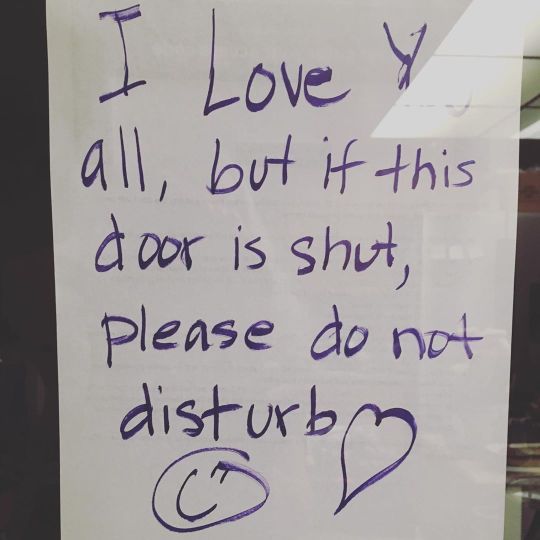 I Love You
all, but if this
door is shut,
please do not
disturb